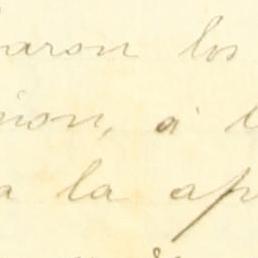 aron los
nion, á l
a la ap